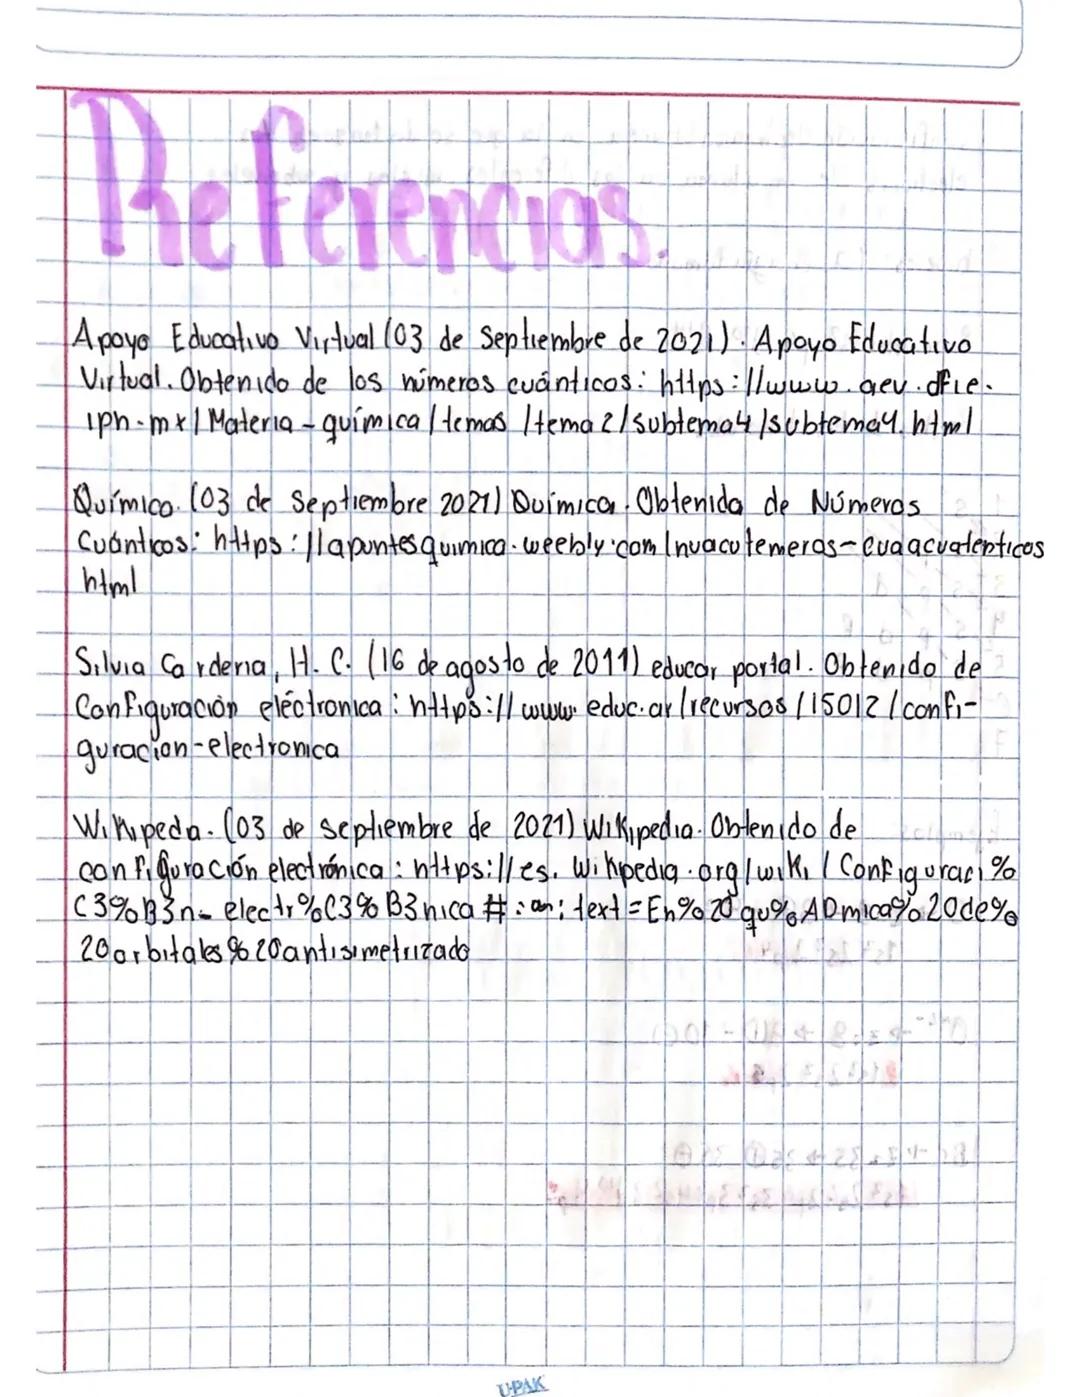 Referencias.
Apoyo Educativo Virtual (03 de Septiembre de 2021). Apoyo Educativo
Virtual. Obtenido de los números cuánticos: https://www.aev.dfie.
ipn.mx/Materia-química/temas/tema2/subtema4/subtema4.html
Química. (03 de Septiembre 2021) Química. Obtenida de Números
Cuánticos: https://apuntesquimica.weebly.com/nuacutemeros-cuaacutenticos
html
Silvia Carderia, H. C. (16 de agosto de 2011) educar portal. Obtenido de
Configuración eléctronica: https://www.educ.ar/recursos/15012/confi-
guracion-electronica
Wikipeda. (03 de septiembre de 2021) Wikipedia. Obtenido de
configuración electrónica: https://es.wikipedia.org/wiki/Configuraci%
C3%B3n-electr%C3%B3nica#: text=En%20qu%ADmica%20de%
20orbitales%20antisimetrizado
U-PAK